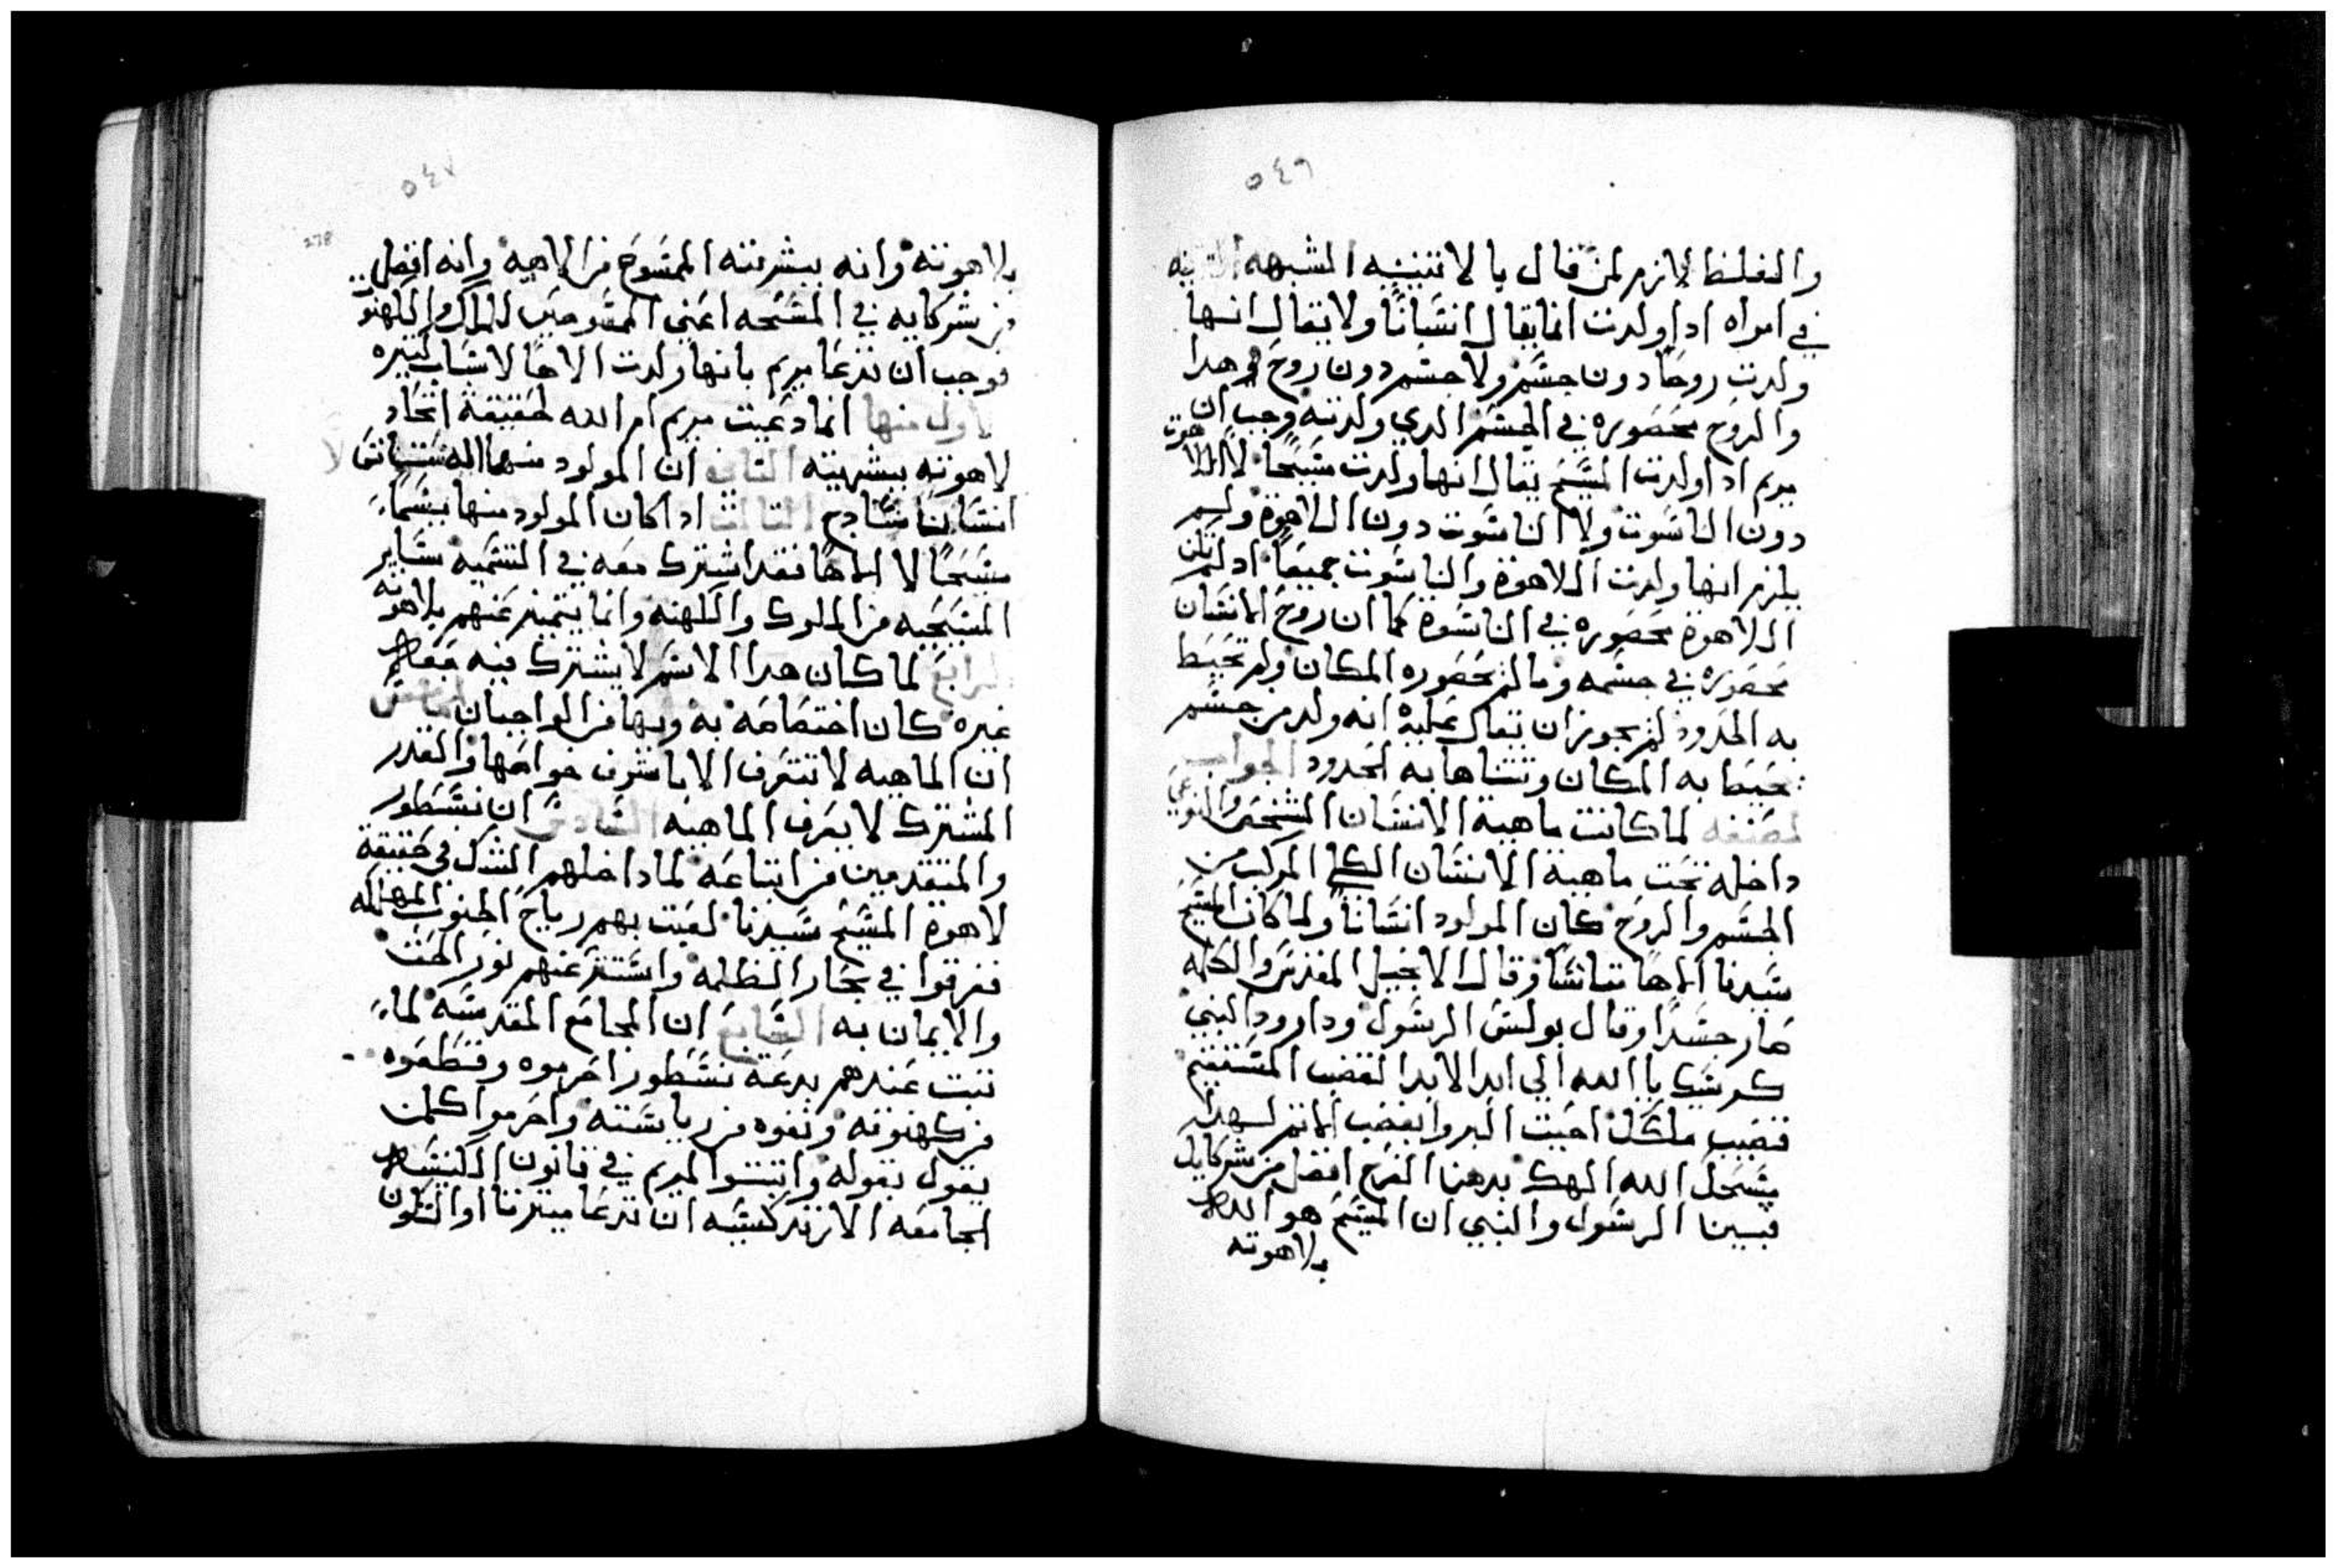 ٥٤٦
والغلط لازم لمن قال بالاتنينيه المشبهه التانيه
في امراه ادا ولدت انما يقال انسانًا ولا يقال انها
ولدت روحًا دون جسم ولا جسم دون روح هدا
والروح محصوره في الجسم الدي ولدته وجب ان
مريم ادا ولدت المسيح يقال انها ولدت مسيحًا لا اللاهوت
دون الناسوت ولا الناسوت دون اللاهوة ولم
يلزم انها ولدت اللاهوة والناسوت جميعًا اد لم تكن
اللاهوة محصوره في الناسوة كما ان روح الانسان
محصوره في جسمه وما لم تحصوره المكان ولم تحيط
به الحدود لم يجوز ان يقال عليه انه ولد من جسم
تحيط به المكان وتتناها به الحدود الجواب
لمصنفه لما كانت ماهية الانسان الشخصي النوعي
داخله تحت ماهية الانسان الكلي المركب من
الجسم والروح كان المولود انسانًا ولما كان المسيح
سيدنا الاهًا متانسًا وقال الانجيل المقدس والكلمه
صار جسدًا وقال بولس الرسول وداوود النبي
كرسيك يا الله الي ابد الابد القضيب المستقيم
قضيب ملكك احببت البر وابغضت الاتم لهدا
مسحك الله الهك بدهن الفرح افضل من شركايك
فبينا الرسول والنبي ان المسيح هو الله
بلاهوته
٥٤٧
278
بلاهوته وانه ببشريته الممسوح من الاهيه وانه افضل
من شركايه في المسحه اعني الممسوحين للملك والكهنو
فوجب ان ندعا مريم بانها ولدت الاهًا لاسباب كتيره
الاول منها انما دعيت مريم ام الله لحقيقة اتحاد
لاهوته ببشريته التاني ان المولود منها اله متانس لا
انسان سادج التالت ادا كان المولود منها يسما
مسيحًا لا الاهًا فقد اشترك معه في التسميه ساير
المسيحيه من الملوك والكهنه وانما يتميز عنهم بلاهوته
الرابع لما كان هدا الاسم لا يشترك فيه معه
غيره كان اختصاصه به وبها من الواجبات الخامس
ان الماهيه لا تتعرف الا باشرف خواصها والقدر
المشترك لا يعرف الماهيه السادس ان نسطور
والمتقدمين من اتباعه لما داخلهم الشك في حقيقة
لاهوة المسيح سيدنا لعبت بهم رياح الجنوب المهلكه
فغرقوا في بحار الظلمه واستتر عنهم نور الحق
والايمان به السابع ان المجامع المقدسه لما
تبت عندهم بدعة نسطور احرموه وقطعوه
من كهنوته ونفوه من رياسته واحرموا كلمن
يقول بقوله واتبتوا لمريم في قانون الكنيسه
الجامعه الارتدكسيه ان تدعا سيدتنا او التكون